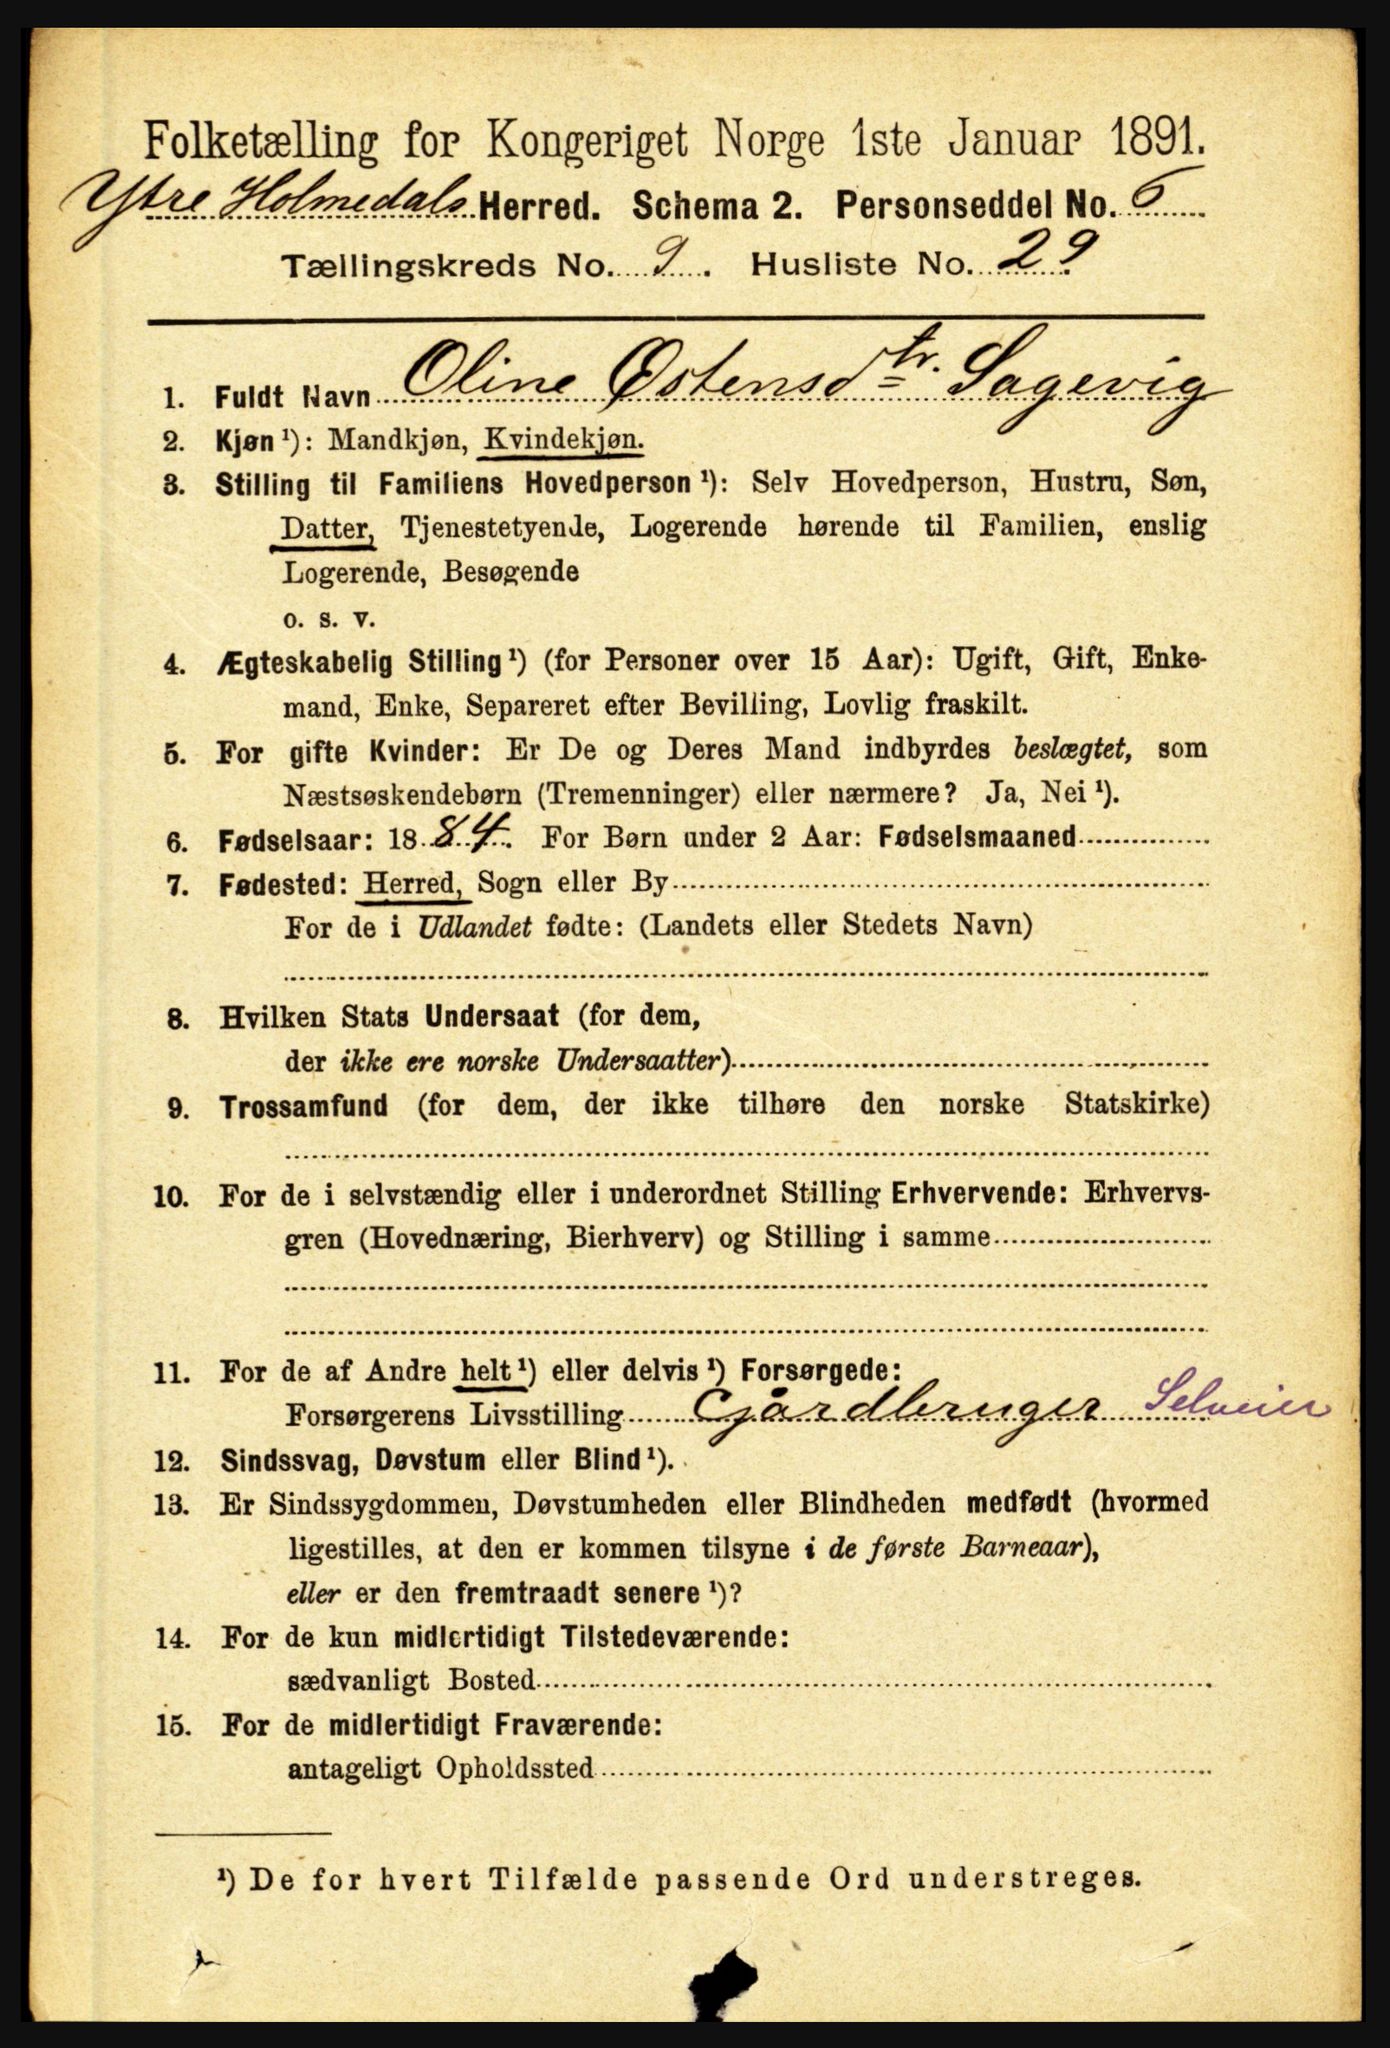 Folketælling for Kongeriget Norge 1ste Januar 1891.
Ytre Holmedals Herred. Schema 2. Personseddel No. 6
Tællingskreds No. 9. Husliste No. 29
1. Fuldt Navn Oline Østensdtr. Sagevig
2. Kjøn¹): Mandkjøn, Kvindekjøn.
3. Stilling til Familiens Hovedperson¹): Selv Hovedperson, Hustru, Søn,
Datter, Tjenestetyende, Logerende hørende til Familien, enslig
Logerende, Besøgende
o. s. v.
4. Ægteskabelig Stilling¹) (for Personer over 15 Aar): Ugift, Gift, Enke-
mand, Enke, Separeret efter Bevilling, Lovlig fraskilt.
5. For gifte Kvinder: Er De og Deres Mand indbyrdes beslægtet, som
Næstsøskendebørn (Tremenninger) eller nærmere? Ja, Nei¹).
6. Fødselsaar: 1884. For Børn under 2 Aar: Fødselsmaaned
7. Fødested: Herred, Sogn eller By
For de i Udlandet fødte: (Landets eller Stedets Navn)
8. Hvilken Stats Undersaat (for dem,
der ikke ere norske Undersaatter)
9. Trossamfund (for dem, der ikke tilhøre den norske Statskirke)
10. For de i selvstændig eller i underordnet Stilling Erhvervende: Erhvervs-
gren (Hovednæring, Bierhverv) og Stilling i samme
11. For de af Andre helt¹) eller delvis¹) Forsørgede:
Forsørgerens Livsstilling Gårdbruger Selveier
12. Sindssvag, Døvstum eller Blind¹).
13. Er Sindssygdommen, Døvstumheden eller Blindheden medfødt (hvormed
ligestilles, at den er kommen tilsyne i de første Barneaar),
eller er den fremtraadt senere¹)?
14. For de kun midlertidigt Tilstedeværende:
sædvanligt Bosted
15. For de midlertidigt Fraværende:
antageligt Opholdssted
¹) De for hvert Tilfælde passende Ord understreges.